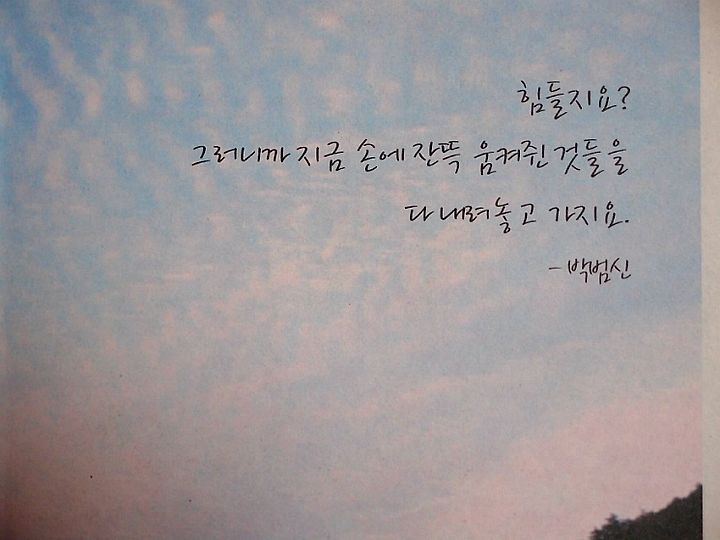 힘들지요?
그러니까 지금 손에 잔뜩 움켜쥔 것들을
다 내려놓고 가지요.
-박범신